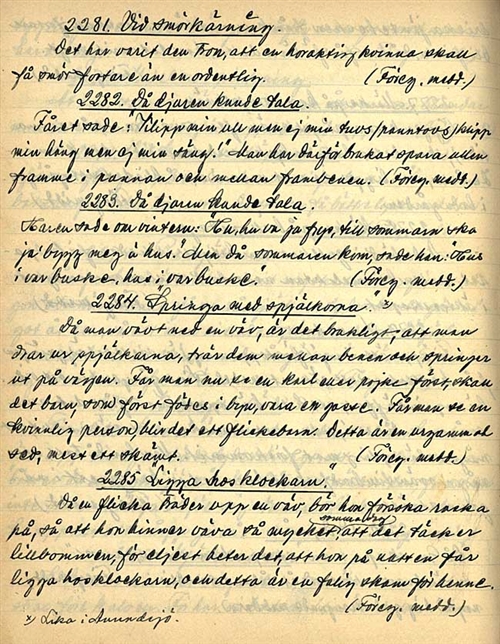 2281. Vid smörkärning.
Det har varit den tron, att en horaktig kvinna skall
få smör fortare än en ordentlig. (Föreg. medd.)
2282. Då djuren kunde tala.
Fåret sade: "Klipp min ull men ej min tuvs/panntovs/klipp
min häng men ej min säng!" Man har därför brukat spara ullen
framme i pannan och mellan frambenen. (Föreg. medd.)
2283. Då djuren kunde tala.
Haren sade om vintern: "Hu, hu va ja frys, till sommarn ska
ja' bygg meg å hus." Men då sommaren kom, sade han: "Hus
i var buske, hus i var buske." (Föreg. medd.)
2284. "Springa med spjälkorna." x)
Då man vävt ned en väv, är det brukligt, att man
drar ur spjälkarna, trär dem mellan benen och springer
ut på vägen. Får man nu se en karl eller pojke först, skall
det barn, som först födes i byn, vara en gosse. Får man se en
kvinnlig person, blir det ett flickebarn. Detta är en urgammal
sed, mest ett skämt. (Föreg. medd.)
2285 "Ligga hos klockarn."
Då en flicka bräder upp en väv, bör hon försöka raska
på, så att hon hinner väva så mycket, att det täcker
lillbommen, för eljest heter det, att hon på natten får
ligga hos klockarn, och detta är en farlig skam för henne.
(Föreg. medd.)
x) Lika i Anundsjö.